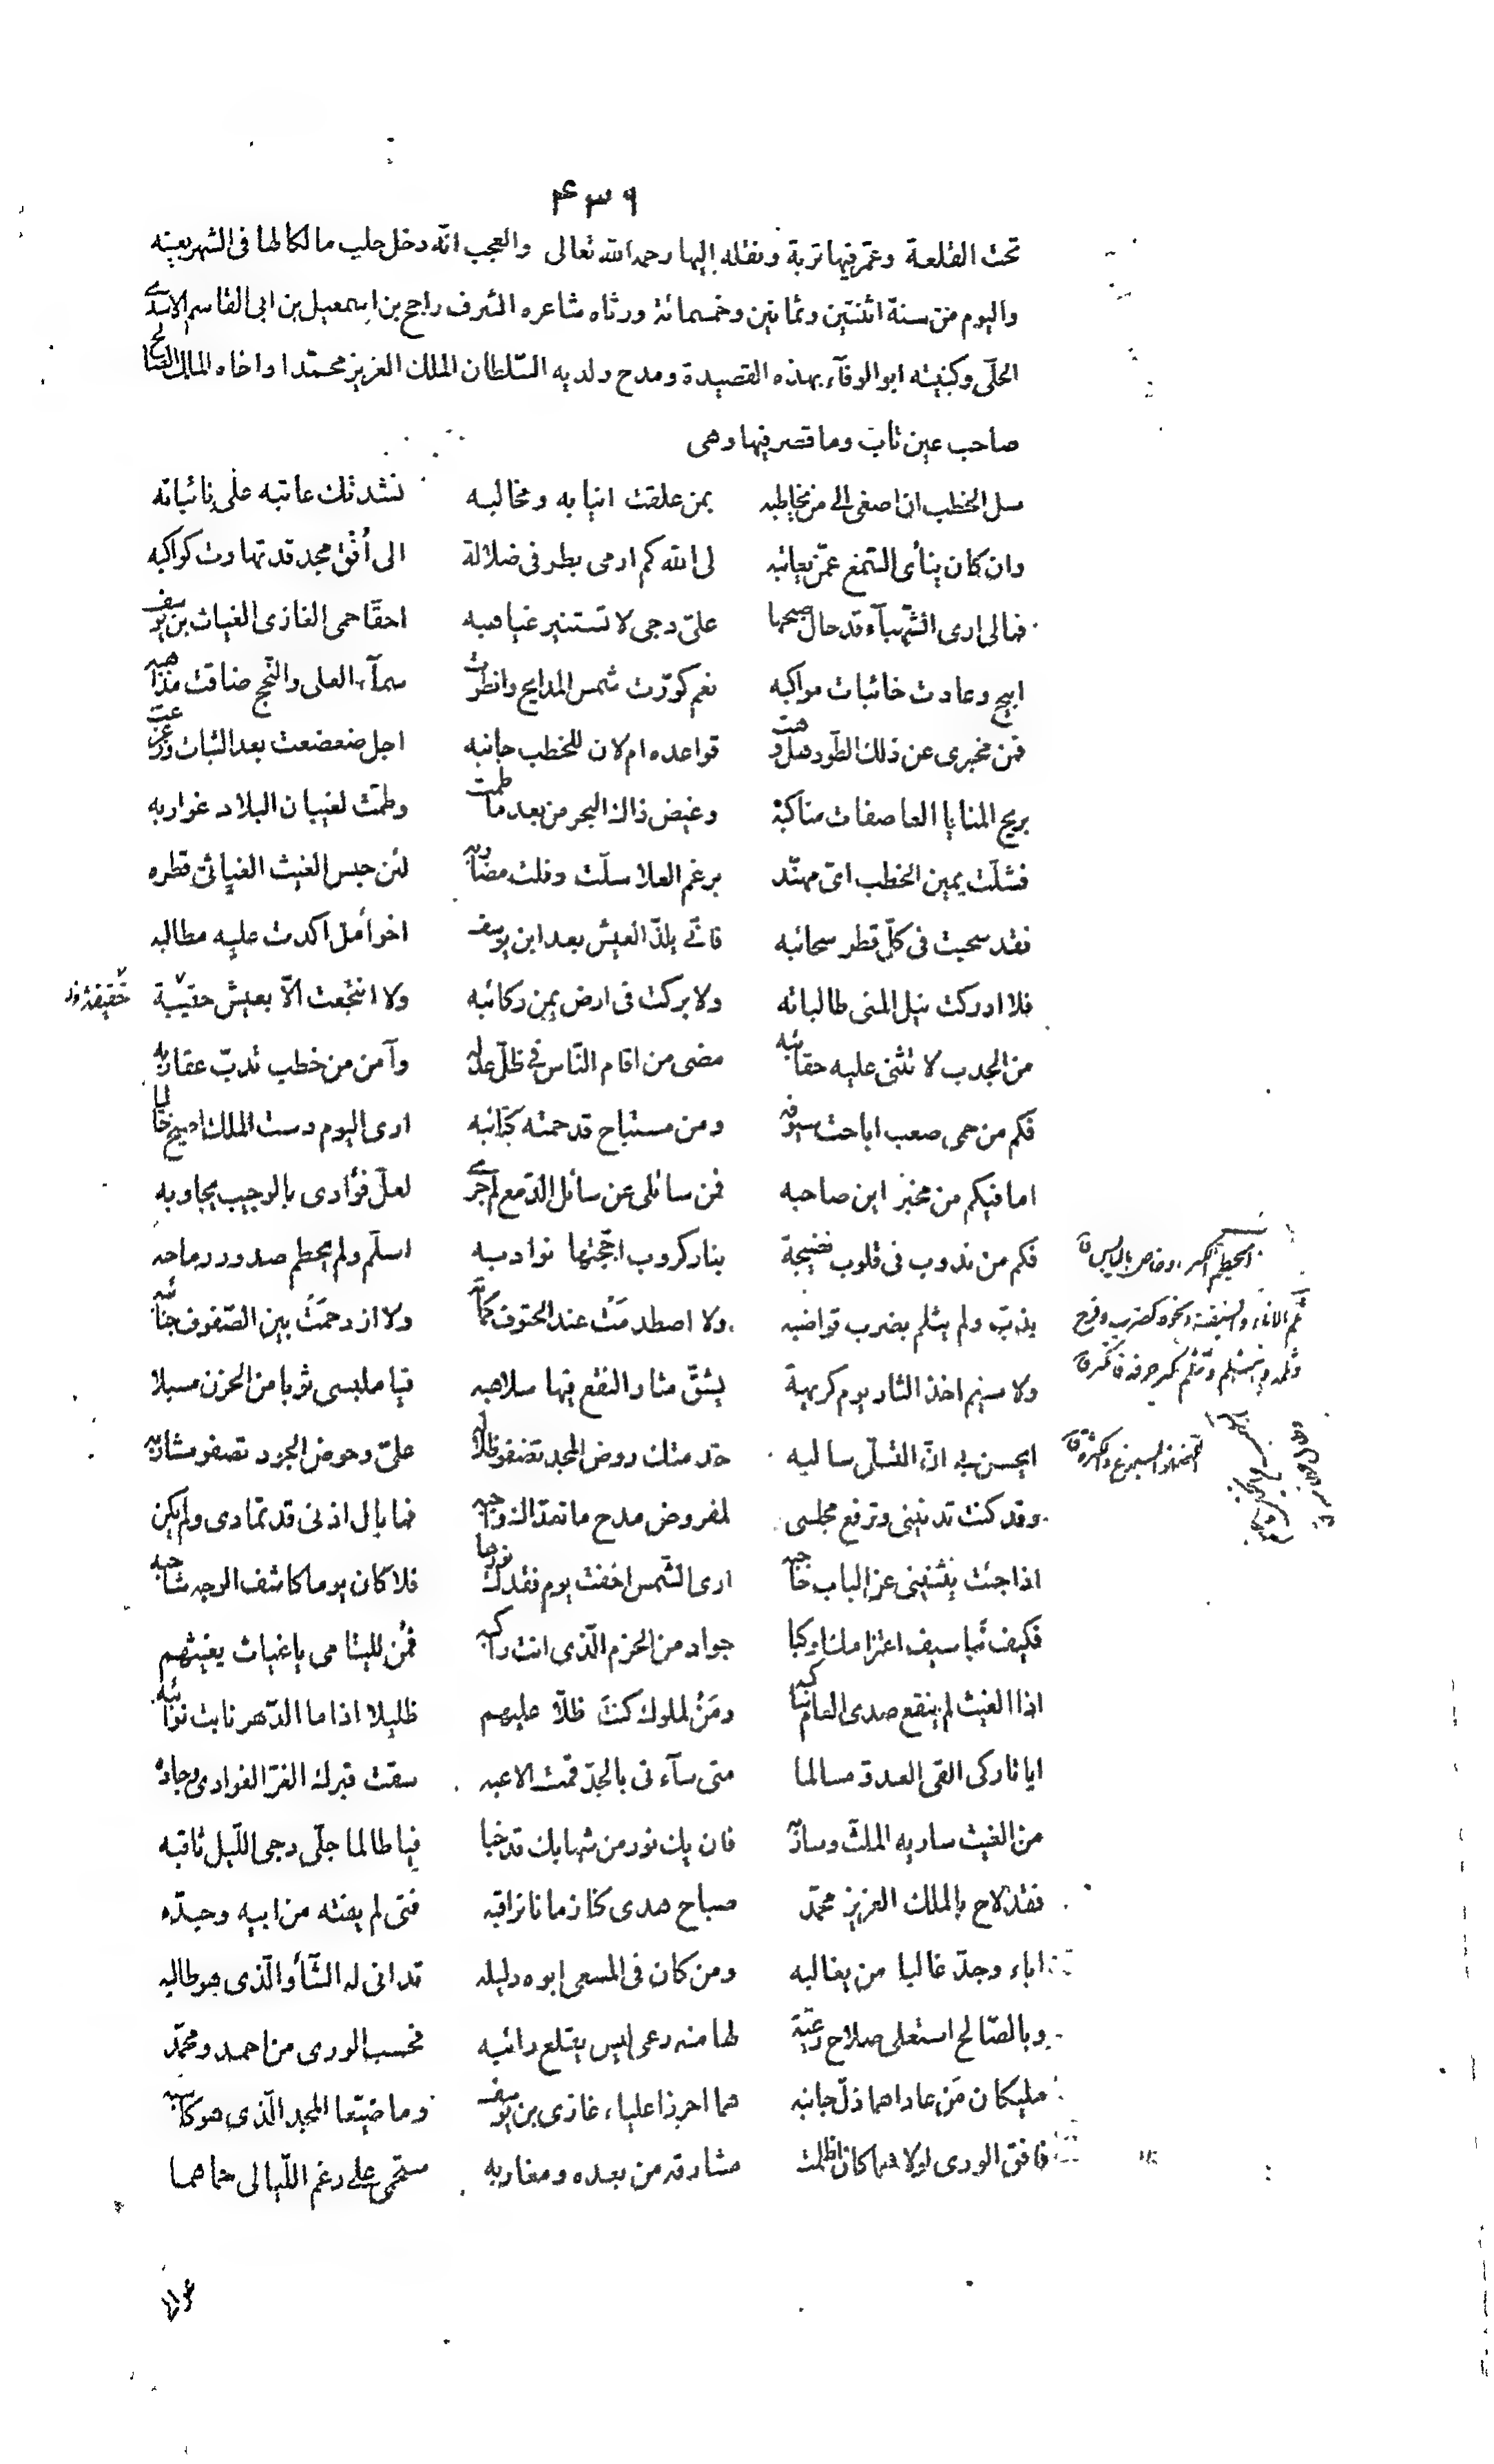 ۴۳۹
تحت القلعة وعمّر فيها تربة ونقله إليها رحمه الله تعالى والعجب انّه دخل حلب مالكا لها فى الشهر بعينه
واليوم من سنة اثنتين وثمانين وخمسمائة ورثاه شاعره الشرف راجح بن اسمعيل بن ابى القاسم الاسدى
الحلّى وكنيته ابو الوفآء بهذه القصيدة ومدح ولديه السّلطان الملك العزيز محمّدا واخاه الملك الصالح
صاحب عين تاب وما قصر فيها وهى
سل الخطب ان اصغى الى من يخاطبه بمن علقت انيابه ومخالبه نشدتك عاتبه على نائباته
وان كان ينأى السّمع عمّن يعاتبه لى الله كم ارمى بطرفى ضلالة الى أفق مجد قد تهاوت كواكبه
فمالى ارى الشّهبآء قد حال صبحها علىّ دجى لا تستنير غياهبه احقّا حمى الغازى الغياث بن يوسف
ابيح وعادت خائبات مواكبه نعم كوّرت شمس المدايح وانطوت سمآء العلى والنّجح ضاقت مذاهبه
فمن مخبرى عن ذلك الطّود هل وهت قواعده ام لان للخطب جانبه اجل ضعضعت بعد الثبات وزعزعت
بريح المنايا العاصفات مناكبه وغيض ذاك البحر من بعد ما طمت وطمّت لغيبان البلاد غواربه
فشلّت يمين الخطب اىّ مهنّد برغم العلا سلّت وفلت مضاربه لئن حبس الغيث الغياثى قطره
فقد سحبت فى كلّ قطر سحائبه فانّى يلذّ العيش بعد ابن يوسف اخو أمل اكدت عليه مطالبه
فلا ادركت نيل المنى طالباته ولا بركت فى ارض يمن ركائبه ولا انتجعت الّا بعيش حقيبة
من الجدب لا تثنى عليه حقائبه مضى من اقام النّاس فى ظلّ عدله وآمن من خطب تدبّ عقاربه
فكم من حمى صعب اباحت سيوفه ومن مستباح قد حمته كتائبه ارى اليوم دست الملك اصبح خاليا
اما فيكم من مخبر اين صاحبه فمن سائلى عن سائل الدّمع لم جرى لعلّ فؤادى بالوجيب يجاوبه
فكم من ندوب فى قلوب نضيجة بنار كروب اجّجتها نوادبه اسلّم ولم يحطم صدور رماحه
بذبّ ولم يثلم بضرب قواضبه ولا اصطدمت عند الحتوف كماته ولا ازدحمت بين الصّفوف جنائبه
ولا سيم اخذ الثار يوم كريهة يشقّ مثار النّقع فيها سلاهبه فيا ملبسى ثوبا من الحزن مسبلا
ايحسن بى انّ التسلّى سالبه خدمتك روض المجد تضفو ظلاله علىّ وحوض الجود تصفو مشاربه
وقد كنت تدنينى وترفع مجلسى لمفروض مدح ما تعدّاك واجبه فما بال اذنى قد تمادى ولم يكن
اذا جئت يثنينى عن الباب حاجبه ارى الشّمس اخفت يوم فقدك نورها فلا كان يوما كاشف الوجه شاحبه
فكيف نبا سيف اعتزامك او كبا جواد من الحزم الّذى انت راكبه فمن لليتامى يا غياث يغيثهم
اذا الغيث لم ينقع صدى العام ساكبه ومن لملوك كنت ظلّا عليهم ظليلا اذا ما الدّهر نابت نوائبه
ايا تاركى القى العدوّ مسالما متى سآءنى بالجدّ قمت الاعبه سقت قبرك الغرّ الغوادى وجاده
من الغيث ساريه الملثّ وساربه فان يك نور من شهابك قد خبا فيا طالما جلّى دجى اللّيل ثاقبه
فقد لاح بالملك العزيز محمّد صباح هدى كنّا زمانا نراقبه فتى لم يفته من ابيه وجدّه
اباء وجدّ غالبا من يغالبه ومن كان فى المسعى ابوه دليله تدانى له الشّأو الّذى هو طالبه
وبالصّالح استعلى صلاح رعيّة لها منه رعى ليس يقلع راتبه فحسب الورى من احمد ومحمّد
مليكان من عاداهما ذلّ جانبه هما احرزا علياء غازى بن يوسف وما ضيّعا المجد الّذى هو كاسبه
فافق الورى لولاهما كان اظلمت مشارقه من بعده ومغاربه ستحمى على رغم اللّيالى حماهما
الحطم الكسر او خاص باليابس ق